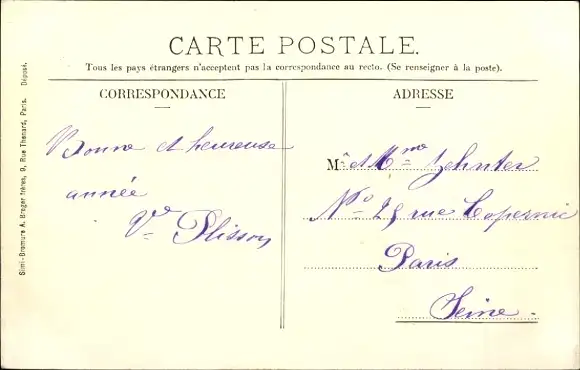 CARTE POSTALE.
Tous les pays étrangers n'acceptent pas la correspondance au recto. (Se renseigner à la poste).
CORRESPONDANCE
Bonne et heureuse
année
Vve Plisson
ADRESSE
M. et Mme Zehnter
No 25 rue Copernic
Paris
Seine.
Simi-Bromure A. Breger frères, 9, Rue Thenard, Paris. Déposé.